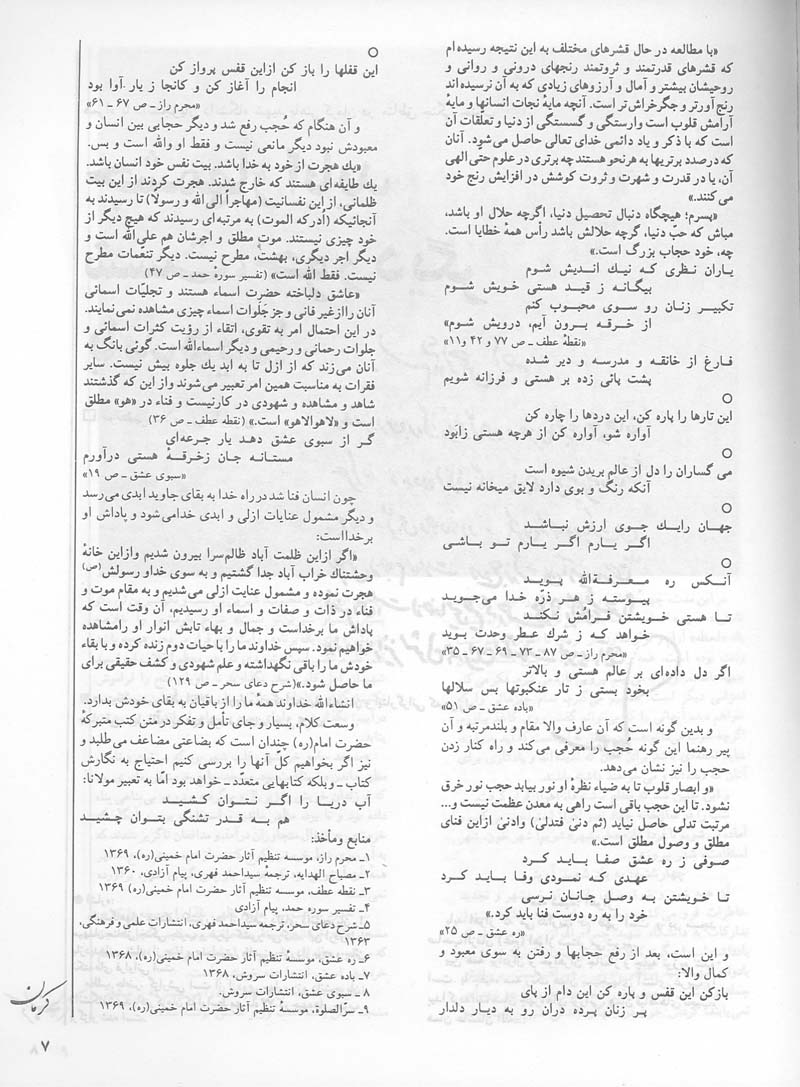 «با مطالعه در حال قشرهای مختلف به این نتیجه رسیده‌ام
که قشرهای قدرتمند و ثروتمند رنجهای درونی و روانی و
روحیشان بیشتر و آمال و آرزوهای زیادی که به آن نرسیده‌اند
رنج‌آورتر و جگرخراش‌تر است. آنچه مایهٔ نجات انسانها و مایهٔ
آرامش قلوب است وارستگی و گسستگی از دنیا و تعلقات آن
است که با ذکر و یاد دائمی خدای تعالی حاصل می‌شود. آنان
که درصدد برتریها به هرنحو هستند چه برتری در علوم حتی الهی
آن، یا در قدرت و شهرت و ثروت کوشش در افزایش رنج خود
می‌کنند.»
«پسرم؛ هیچگاه دنبال تحصیل دنیا، اگرچه حلال او باشد،
مباش که حبّ دنیا، گرچه حلالش باشد رأس همهٔ خطایا است.
چه، خود حجاب بزرگ است.»
یاران نظری که نیک اندیش شوم
بیگانه ز قید هستی خویش شوم
تکبیر زنان رو سوی محبوب کنم
از خرقه برون آیم، درویش شوم»
«نقطهٔ عطف ـ ص ۷۷ و ۴۲ و۱۱»
فارغ از خانقه و مدرسه و دیر شده
پشت پائی زده بر هستی و فرزانه شویم
○
این تارها را پاره کن، این دردها را چاره کن
آواره شو، آواره کن از هرچه هستی زابَود
○
می گساران را دل از عالم بریدن شیوه است
آنکه رنگ و بوی دارد لایق میخانه نیست
○
جهان رایک جوی ارزش نباشد
اگر یارم اگر یارم تو باشی
○
آنکس ره معرفةالله پوید
پیوسته ز هر ذرّه خدا می‌جوید
تا هستی خویشتن فرامُش نکند
خواهد که ز شرك عطر وحدت بوید
«محرم راز ـ ص ۸۷ ـ ۷۳ ـ ۶۹ ـ ۶۷ ـ ۳۵»
اگر دل داده‌ای بر عالم هستی و بالاتر
بخود بستی ز تار عنکبوتها بس سلالها
«باده عشق ـ ص ۵۱»
و بدین گونه است که آن عارف والا مقام و بلندمرتبه و آن
پیر رهنما این گونه حُجب را معرفی می‌کند و راه کنار زدن
حجب را نیز نشان می‌دهد.
«و ابصار قلوب تا به ضیاء نظرهٔ او نور بیابد حجب نور خرق
نشود. تا این حجب باقی است راهی به معدن عظمت نیست و...
مرتبت تدلی حاصل نیاید (ثم دنیٰ فتدلیٰ) وادنیٰ ازاین فنای
مطلق و وصول مطلق است.»
صوفی ز ره عشق صفا باید کرد
عهدی که نمودی وفا باید کرد
تا خویشتن به وصل جانان نرسی
خود را به ره دوست فنا باید کرد.»
«ره عشق ـ ص ۲۵»
و این است، بعد از رفع حجابها و رفتن به سوی معبود و
کمال والا:
بازکن این قفس و پاره کن این دام از پای
پر زنان پرده دران رو به دیار دلدار
○
این قفلها را باز کن ازاین قفس پرواز کن
انجام را آغاز کن و کانجا ز یار آوا بود
«محرم راز ـ ص ۶۷ ـ ۶۱»
و آن هنگام که حُجب رفع شد و دیگر حجابی بین انسان و
معبودش نبود دیگر مانعی نیست و فقط او والله است و بس.
«یك هجرت از خود به خدا باشد. بیت نفس خود انسان باشد.
یك طایفه‌ای هستند که خارج شدند. هجرت کردند از این بیت
ظلمانی، از این نفسانیت (مهاجراً الی‌الله و رسولا) تا رسیدند به
آنجائیکه (أدرکه الموت) به مرتبه‌ای رسیدند که هیچ دیگر از
خود چیزی نیستند. موت مطلق و اجرشان هم علی‌الله است و
دیگر اجر دیگری، بهشت، مطرح نیست. دیگر تنعّمات مطرح
نیست. فقط الله است» (تفسیر سورهٔ حمد ـ ص ۴۷)
«عاشق دلباخته حضرت اسماء هستند و تجلیّات اسمائی
آنان رااز غیر فانی و جز جَلَوات اسماء چیزی مشاهده نمی‌نمایند.
در این احتمال امر به تقوی، اتقاء از رؤیت کثرات اسمائی و
جلوات رحمانی و رحیمی و دیگر اسماءالله است. گوئی بانگ به
آنان می‌زند که از ازل تا به ابد یك جلوه بیش نیست. سایر
فقرات به مناسبت همین امر تعبیر می‌شوند واز این که گذشتند
شاهد و مشاهده و شهودی در کارنیست و فناء در «هو» مطلق
است و «لاهوالاهو» است.» (نقطه عطف ـ ص ۳۶)
گر از سبوی عشق دهد یار جرعه‌ای
مستانه جان زخرقهٔ هستی درآورم
«سبوی عشق ـ ص ۱۹»
چون انسان فنا شد در راه خدا به بقای جاوید ابدی می‌رسد
و دیگر مشمول عنایات ازلی و ابدی خدامی‌شود و پاداش او
برخدااست:
«اگر ازاین ظلمت آباد ظالم‌سرا بیرون شدیم وازاین خانهٔ
وحشتناك خراب آباد جدا گشتیم و به سوی خداو رسولش(ص)
هجرت نموده و مشمول عنایت ازلی می‌شدیم و به مقام موت و
فناء در ذات و صفات و اسماء او رسیدیم، آن وقت است که
پاداش ما برخداست و جمال و بهاء تابش انوار او رامشاهده
خواهیم نمود. سپس خداوند ما را با حیات دوم زنده کرده و با بقاء
خودش ما را باقی نگهداشته و علم شهودی و کشف حقیقی برای
ما حاصل شود.»(شرح دعای سحر ـ ص ۱۲۹)
انشاءالله خداوند همهٔ ما را از باقیان به بقای خودش بدارد.
وسعت کلام، بسیار و جای تأمل و تفکر در متن کتب متبرکهٔ
حضرت امام(ره) چندان است که بضاعتی مضاعف می‌طلبد و
نیز اگر بخواهیم کلّ آنها را بررسی کنیم احتیاج به نگارش
کتاب ـ وبلکه کتابهایی متعدّد ـ خواهد بود امّا به تعبیر مولانا:
آب دریا را اگر نتوان کشید
هم به قدر تشنگی بتوان چشید
منابع ومأخذ:
۱ـ محرم راز، موسسه تنظیم آثار حضرت امام خمینی(ره)، ۱۳۶۹.
۲ـ مصباح الهدایه، ترجمهٔ سیداحمد فهری، پیام آزادی، ۱۳۶۰
۳ـ نقطه عطف، موسسه تنظیم آثار حضرت امام خمینی(ره) ۱۳۶۹
۴ـ تفسیر سوره حمد، پیام آزادی
۵ـ شرح دعای سحر، ترجمه سیداحمد فهری، انتشارات علمی و فرهنگی،
۱۳۶۳
۶ـ ره عشق، موسسهٔ تنظیم آثار حضرت امام خمینی(ره)، ۱۳۶۸
۷ـ باده عشق، انتشارات سروش، ۱۳۶۸
۸ ـ سبوی عشق، انتشارات سروش.
۹ـ سرّالصلوة، موسسهٔ تنظیم آثار حضرت امام خمینی(ره)، ۱۳۶۹
کرمان
۷